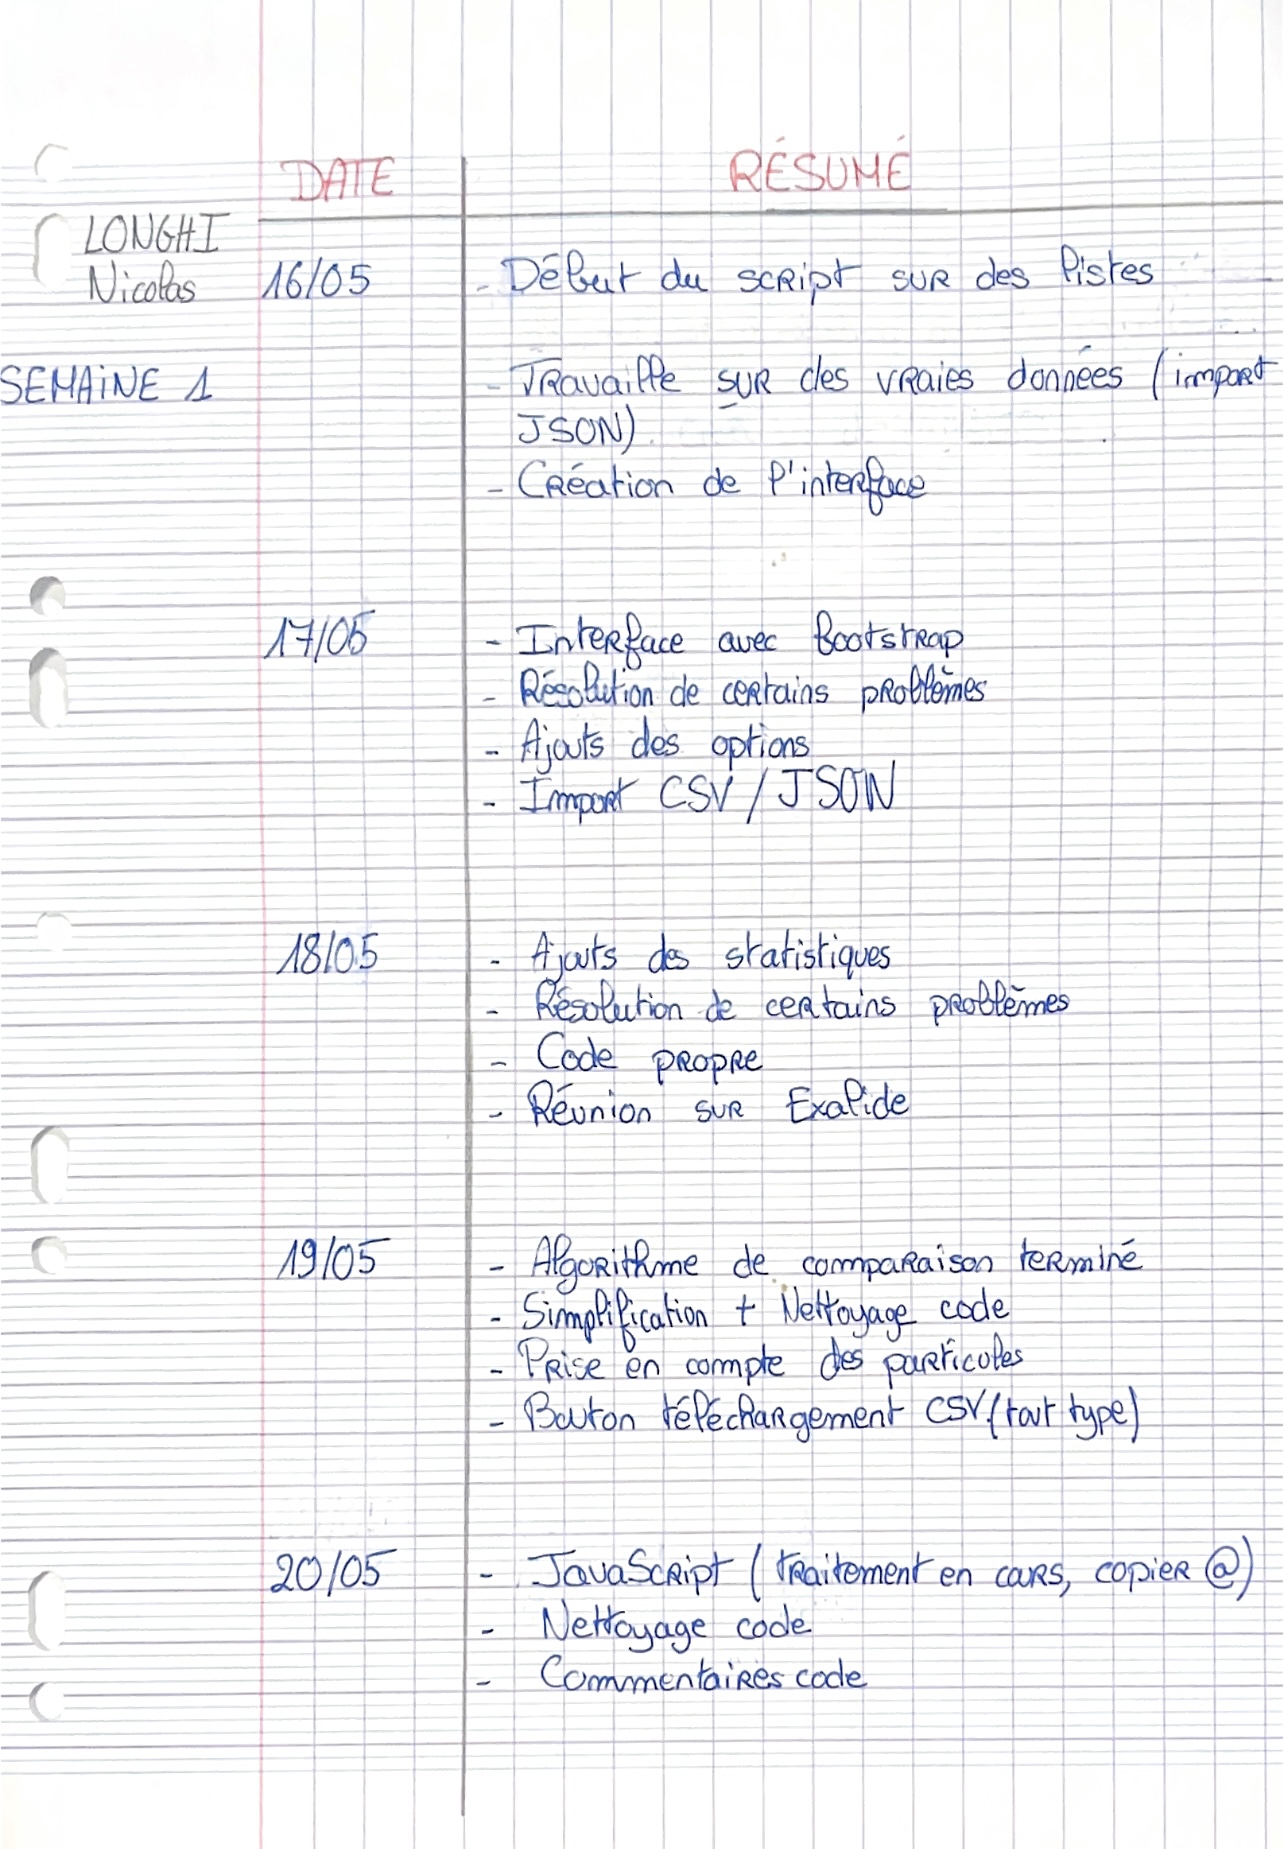 DATE RÉSUMÉ
LONGHI
Nicolas 16/05 - Début du script sur des listes
SEMAINE 1 - Travaille sur des vraies données (import
JSON)
- Création de l'interface
17/05 - Interface avec Bootstrap
- Résolution de certains problèmes
- Ajouts des options
- Import CSV / JSON
18/05 - Ajouts des statistiques
- Résolution de certains problèmes
- Code propre
- Réunion sur Exalide
19/05 - Algorithme de comparaison terminé
- Simplification + Nettoyage code
- Prise en compte des particules
- Bouton téléchargement CSV (tout type)
20/05 - JavaScript (traitement en cours, copier @)
- Nettoyage code
- Commentaires code